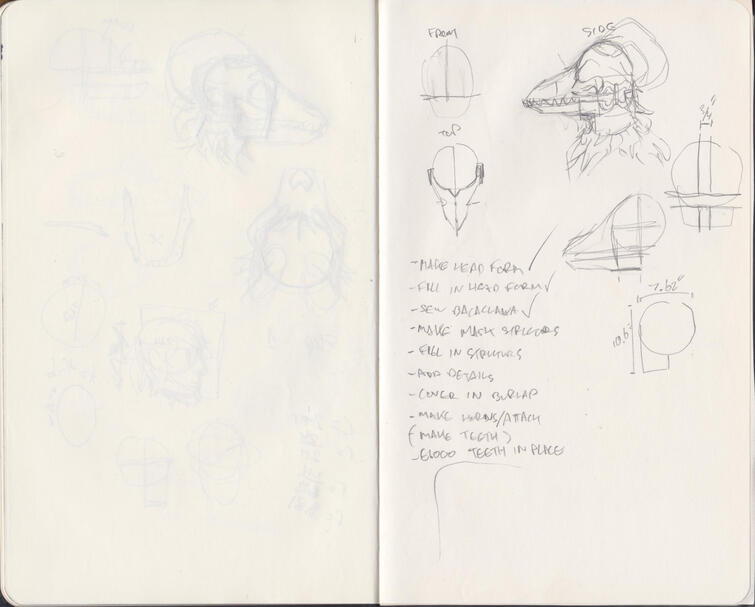 FRONT
SIDE
TOP
3/4"
- MAKE HEAD FORM ✓
- FILL IN HEAD FORM ✓
- SEW BALACLAVA ✓
7.62"
- MAKE MASK STRUCTURS
10.63
- FILL IN STRUCTURS
- ADD DETAILS
- COVER IN BURLAP
- MAKE HORNS/ATTACH
(MAKE TEETH)
- TEETH IN PLACE